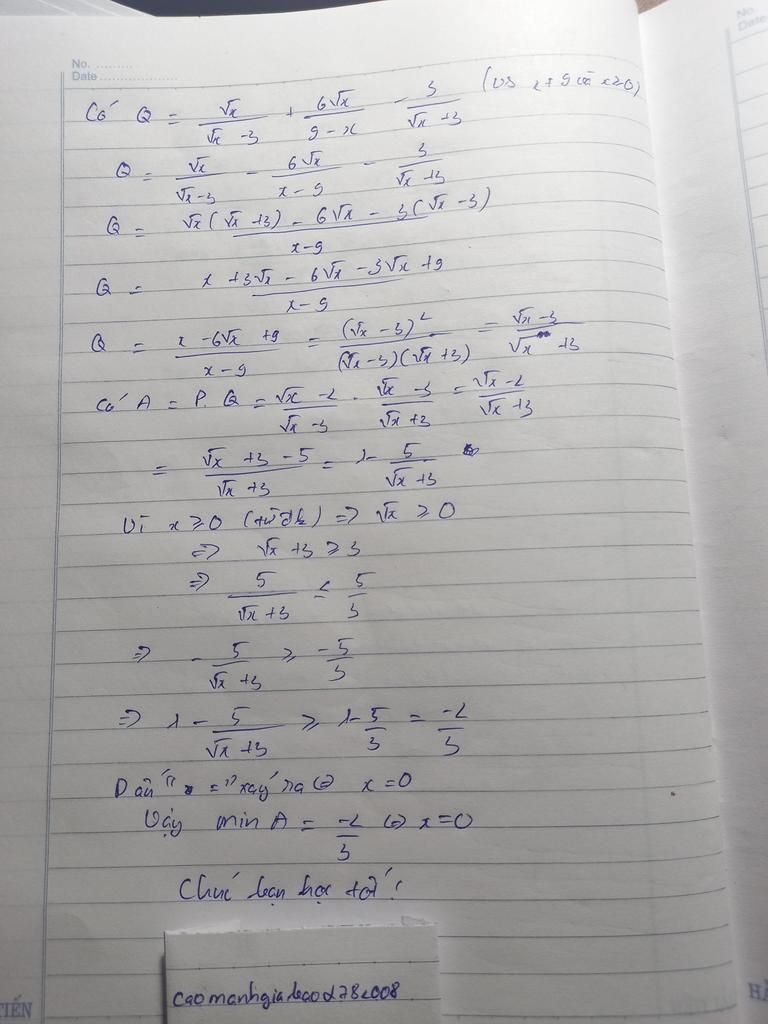 No. ..........
Date ....................
No.
Date
Có Q = √x/(√x - 3) + 6√x/(9 - x) - 3/(√x + 3) (Với x ≠ 9 và x ≥ 0)
Q = √x/(√x - 3) - 6√x/(x - 9) - 3/(√x + 3)
Q = (√x(√x + 3) - 6√x - 3(√x - 3))/(x - 9)
Q = (x + 3√x - 6√x - 3√x + 9)/(x - 9)
Q = (x - 6√x + 9)/(x - 9) = (√x - 3)²/((√x - 3)(√x + 3)) = (√x - 3)/(√x + 3)
Có A = P.Q = (√x - 2)/(√x - 3) . (√x - 3)/(√x + 3) = (√x - 2)/(√x + 3)
= (√x + 3 - 5)/(√x + 3) = 1 - 5/(√x + 3)
Vì x ≥ 0 (từ đk) => √x ≥ 0
=> √x + 3 ≥ 3
=> 5/(√x + 3) ≤ 5/3
=> - 5/(√x + 3) ≥ -5/3
=> 1 - 5/(√x + 3) ≥ 1 - 5/3 = -2/3
Dấu "=" xảy ra <=> x = 0
Vậy min A = -2/3 <=> x = 0
Chúc bạn học tốt!
caomanhgiabao
TIẾN